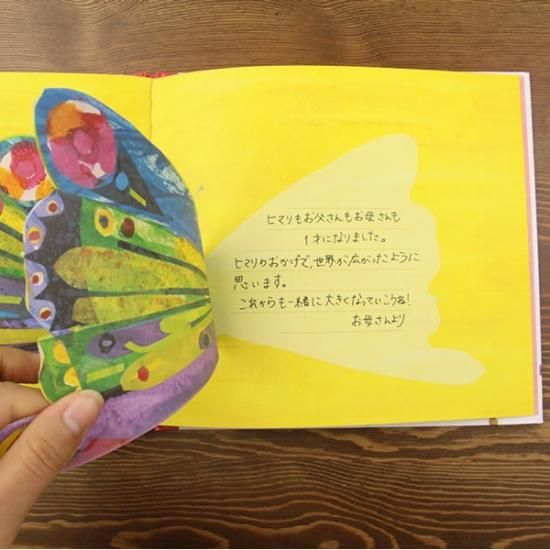 ヒマリもお父さんもお母さんも
1才になりました。
ヒマリのおかげで、世界が広がったように
思います。
これからも一緒に大きくなっていこうね!
お母さんより